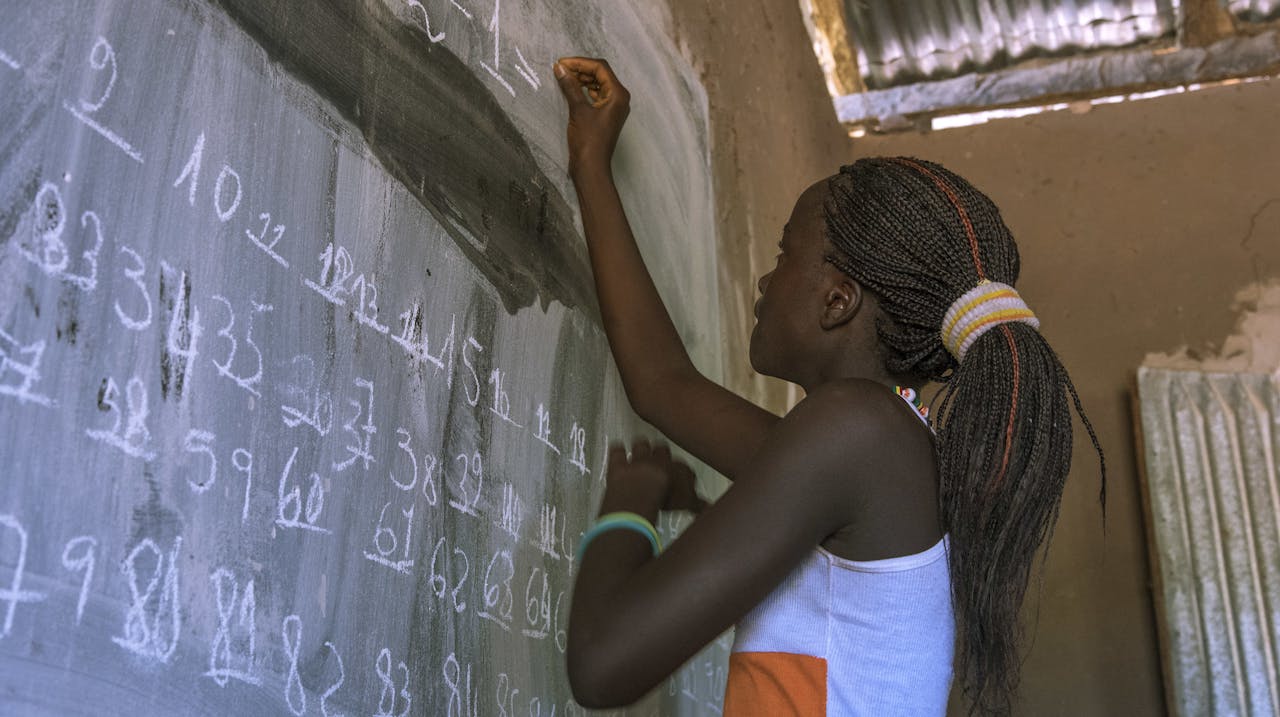 2 - 1 =
9 10 11 12 13 14 15 16 17 18
33 34 35 37 38 39 40 41
58 59 60 61 62 63 64
79 80 81 82 83 84 85